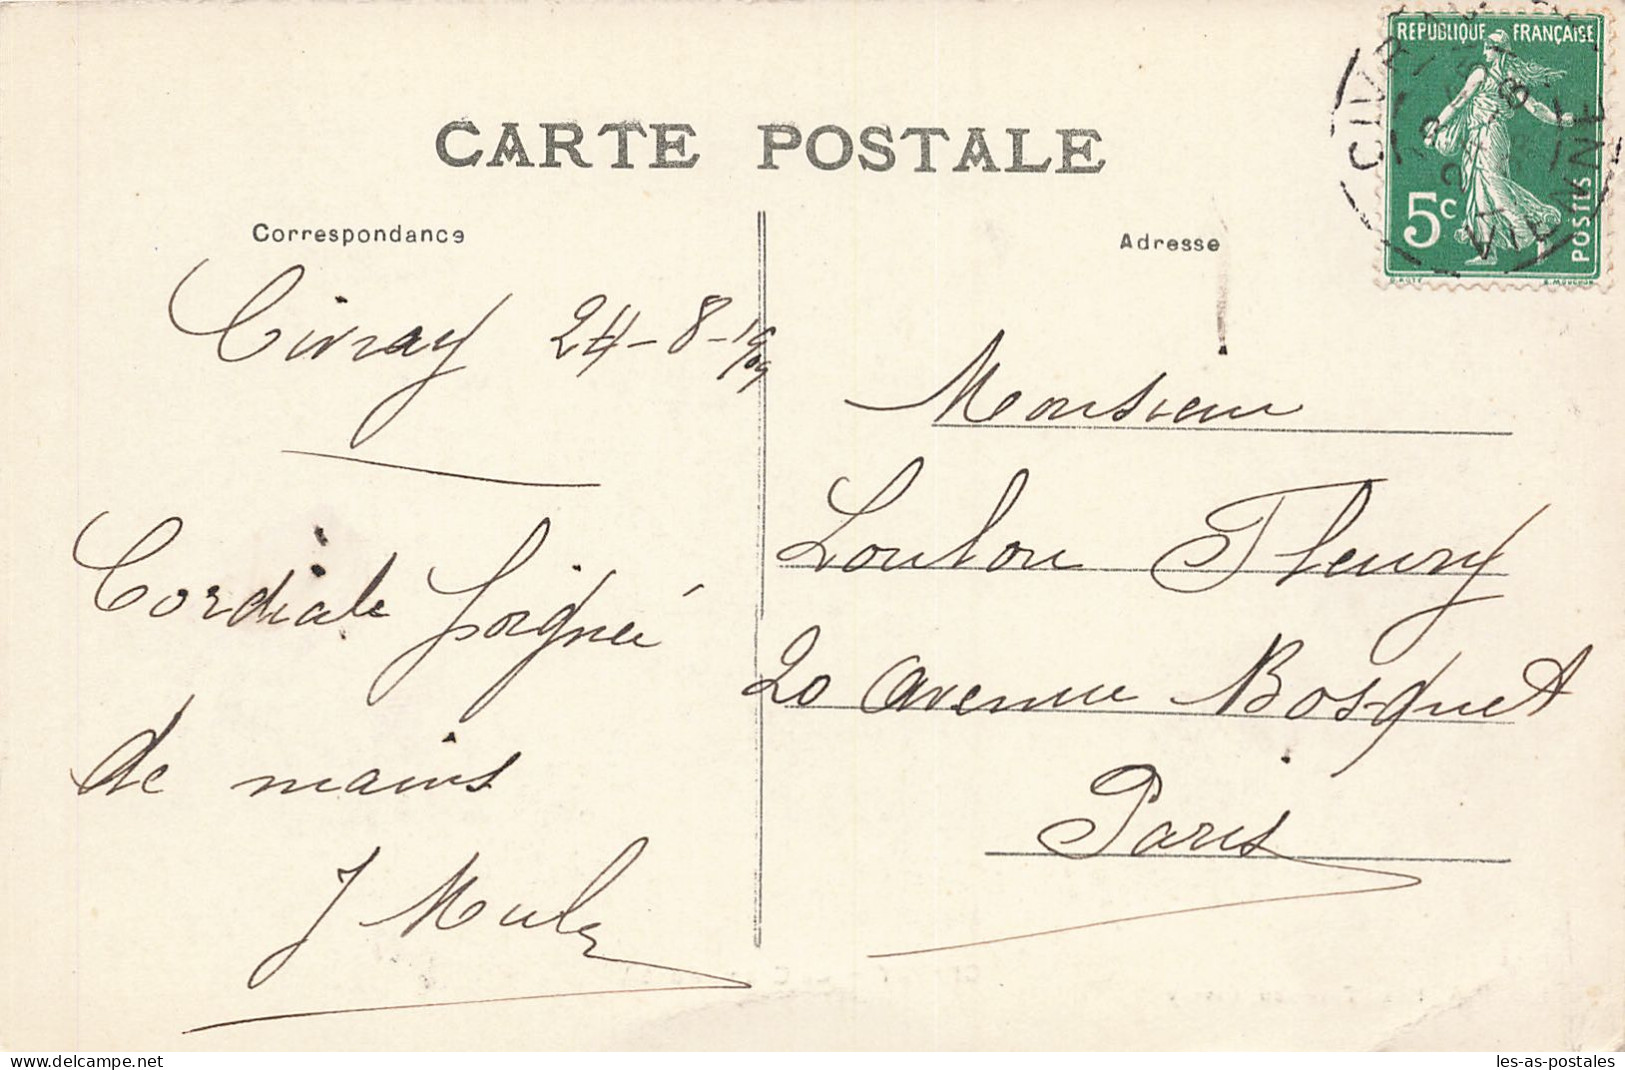 CARTE POSTALE
Correspondance
Civray 24-8-1909
Cordiale poignée
de mains
Adresse
Monsieur
Loulou Fleury
20 avenue Bosquet
Paris
REPUBLIQUE FRANÇAISE
5c
POSTES
CIVRAY
VIENNE
E. MOUCHON
delcampe.net
les-as-postales